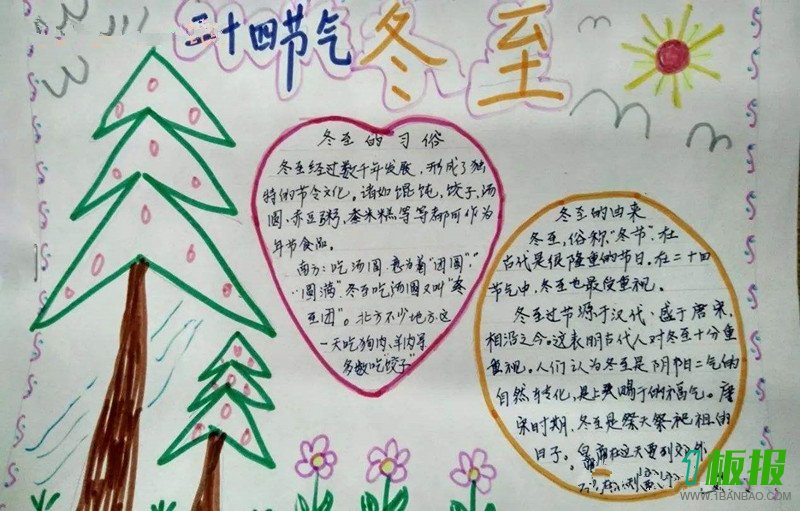 二十四节气 冬至
冬至的习俗
冬至经过数千年发展，形成了独
特的节令文化。诸如馄饨，饺子，汤
圆，赤豆粥，黍米糕等等都可作为
年节食品。
南方：吃汤圆，意为着“团圆”，
“圆满”冬至吃汤圆又叫“冬
至团”。北方不少地方，这
一天吃狗肉、羊肉等
多数吃“饺子”
冬至的由来
冬至，俗称“冬节”，在
古代是很隆重的节日，在二十四
节气中，冬至也最受重视。
冬至过节源于汉代，盛于唐宋，
相沿之今。这表明古代人对冬至十分重
重视。人们认为冬至是阴节日二气的
自然转化，是上天赐于的福气。唐
宋时期，冬至是祭天祭祀祖的
日子。皇帝在这天要到郊外
1板报
WWW.1BANBAO.COM